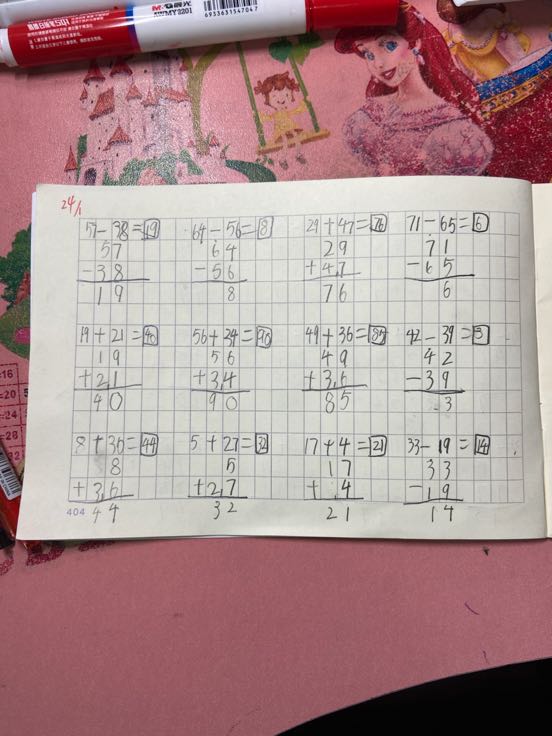 M&G 晨光
XWMY2201
6933631547047
24/1
57-38=19
64-56=8
29+47=76
71-65=6
57
64
29
71
-38
-56
+47
-65
19
8
76
6
19+21=40
56+34=90
49+36=85
42-39=3
19
56
49
42
+21
+34
+36
-39
40
90
85
3
8+36=44
5+27=32
17+4=21
33-19=14
8
5
17
33
+36
+27
+4
-19
44
32
21
14
404
=16
=20
=24
=28